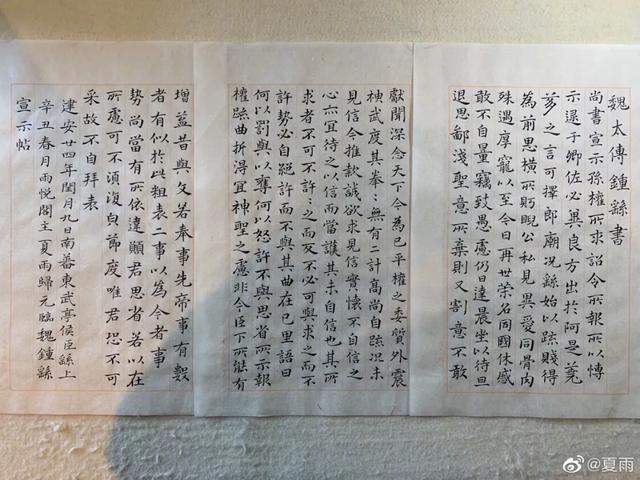 魏太傅鍾繇書
尚書宣示孫權所求詔令所報所以博
示逮于卿佐必冀良方出於阿是芻
蕘之言可擇郎廟況繇始以疏賤得
為前恩橫所眄睨公私見異愛同骨肉
殊遇厚寵以至今日再世榮名同國休慼
敢不自量竊致愚慮仍日達晨坐以待旦
退思鄙淺聖意所棄則又割意不敢
獻聞深念天下今為已平權之委質外震
神武度其拳々無有二計高尚自疏況未
見信今推款誠欲求見信實懷不自信之
心亦宜待之以信而當護其未自信也其所
求者不可不許之而反不必可與求之而不
許勢必自絕許而不與其曲在已里語曰
何以罰與以奪何以怒許不與思省所示報
權疏曲折得宜神聖之慮非今臣下所能有
增益昔與文若奉事先帝事有數
者有似於此粗表二事以為今者事
勢尚當有所依違願君思省若以在
所慮可不須復自節度唯君恐不可
采故不自拜表
建安廿四年閏月九日南蕃東武亭侯臣繇上
辛丑春月雨悅閣主夏雨歸元臨魏鍾繇
宣示帖
@夏雨